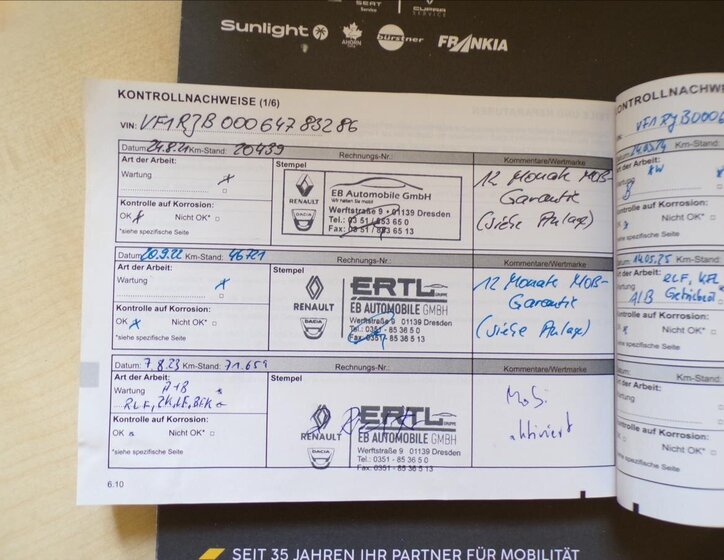 SEAT CUPRA
Service SERVICE
Sunlight AHORN bürstner FRANKIA
KONTROLLNACHWEISE (1/6)
VIN: VF1RJB00064783286
Datum: 24.8.21 Km-Stand: 20439 Rechnungs-Nr.:
Art der Arbeit: Stempel Kommentare/Wertmarke
Wartung x
Kontrolle auf Korrosion:
OK x Nicht OK* □
*siehe spezifische Seite
RENAULT
DACIA
EB Automobile GmbH
Wir halten Sie mobil
Werftstraße 9 • 01139 Dresden
Tel.: 03 51 / 853 65 0
Fax: 03 51 / 853 65 13
12 Monate MOB-
Garantie
(siehe Anlage)
Datum: 20.9.22 Km-Stand: 46721 Rechnungs-Nr.:
Art der Arbeit: Stempel Kommentare/Wertmarke
Wartung x
Kontrolle auf Korrosion:
OK x Nicht OK* □
*siehe spezifische Seite
RENAULT
DACIA
ERTL GRUPPE
EB AUTOMOBILE GMBH
Werftstraße 9 · 01139 Dresden
Tel.: 0351 - 85 36 5 0
Fax: 0351 - 85 36 5 13
12 Monate MOB-
Garantie
(siehe Anlage)
Datum: 7.8.23 Km-Stand: 71.659 Rechnungs-Nr.:
Art der Arbeit: Stempel Kommentare/Wertmarke
Wartung A+B
RLF, ZK, LF, BFK
Kontrolle auf Korrosion:
OK Nicht OK* □
*siehe spezifische Seite
RENAULT
DACIA
ERTL GRUPPE
EB AUTOMOBILE GMBH
Werftstraße 9 · 01139 Dresden
Tel.: 0351 - 85 36 5 0
Fax: 0351 - 85 36 5 13
Mobi
aktiviert
6.10
KONTROLLNACHWEISE
VIN: VF1RJB0006
Km-Stand:
Art der Arbeit:
Kontrolle auf Korrosion:
Nicht OK* □
*siehe spezifische Seite
Datum: 14.05.25 Km-Stand:
Art der Arbeit: RLF, KFL
A/B
Kontrolle auf Korrosion:
Nicht OK* □
*siehe spezifische Seite
Datum: Km-Stand:
Art der Arbeit:
Wartung
Kontrolle auf Korrosion:
OK □ Nicht OK* □
*siehe spezifische Seite
SEIT 35 JAHREN IHR PARTNER FÜR MOBILITÄT